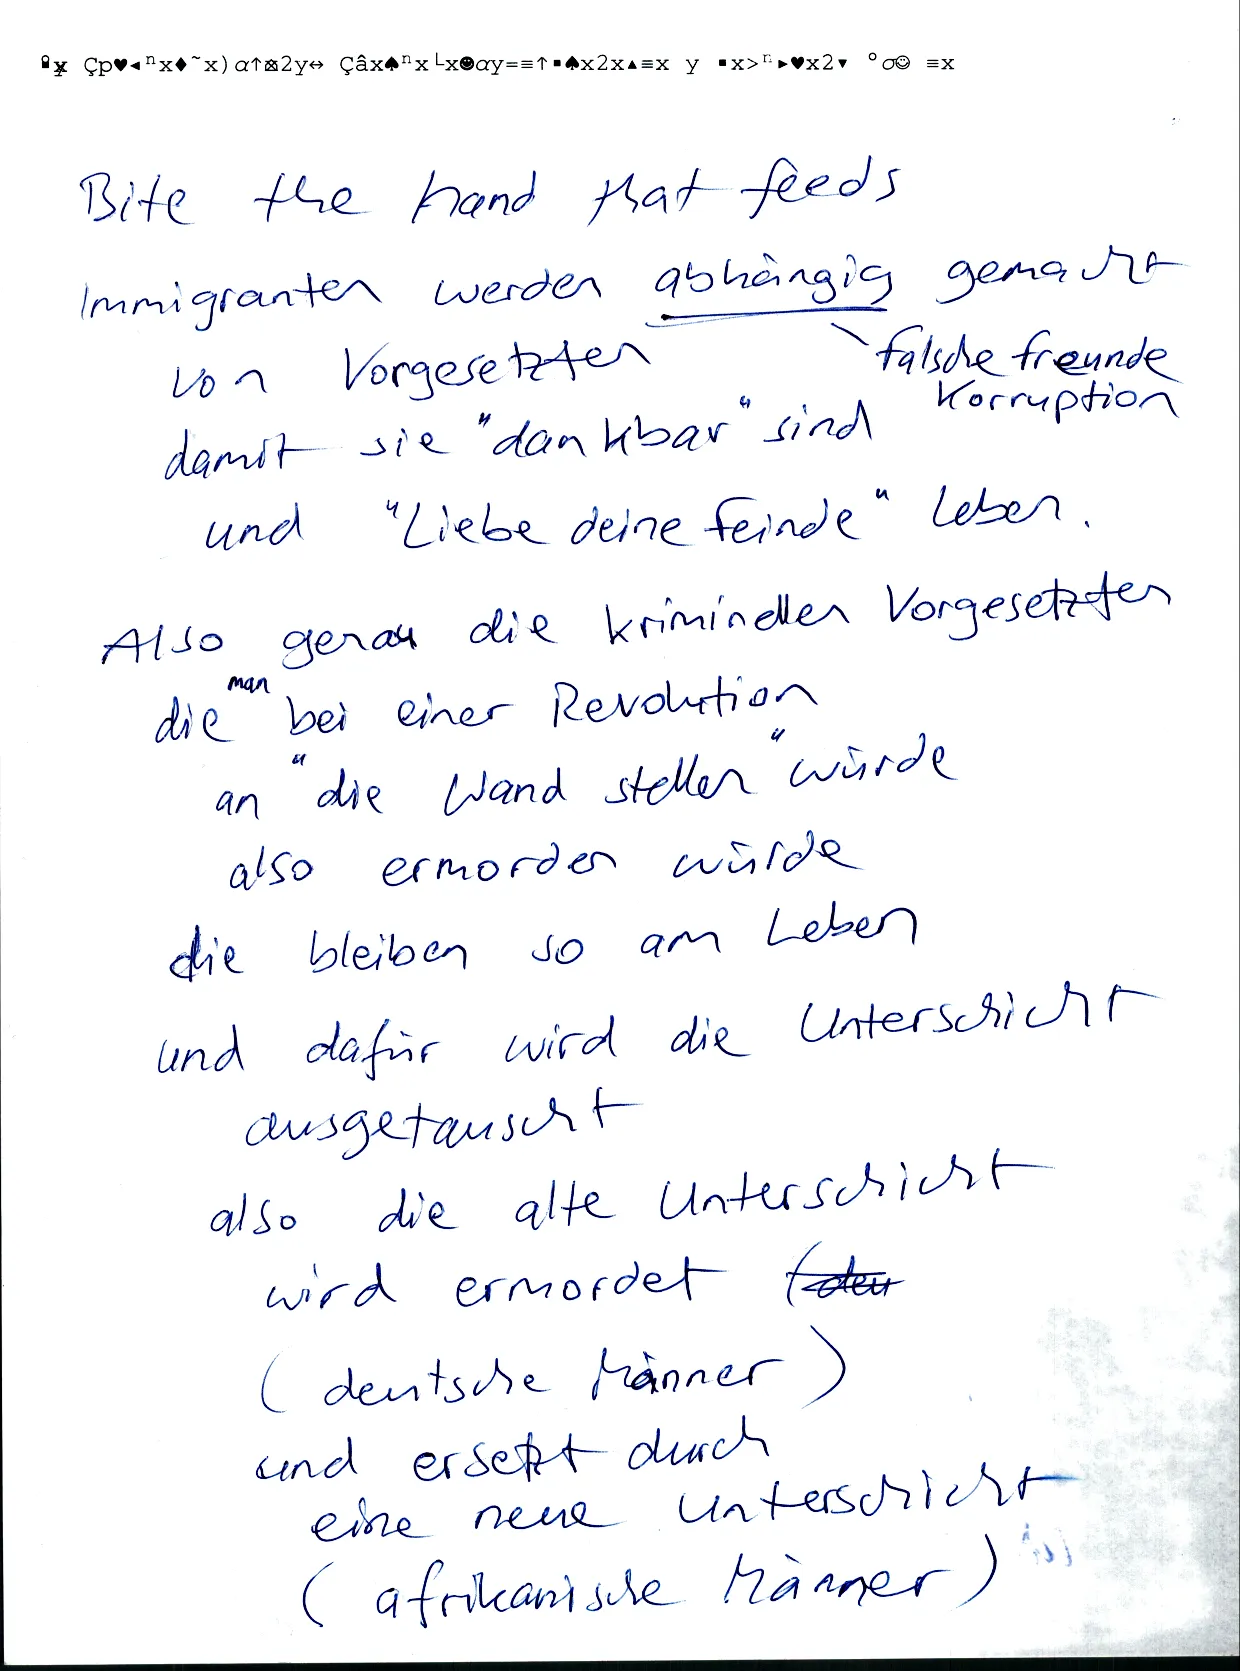 Bite the hand that feeds
Immigranten werden abhängig gemacht
von Vorgesetzten
falsche freunde
Korruption
damit sie "dankbar" sind
und "Liebe deine Feinde" leben.
Also genau die kriminellen Vorgesetzten
die man bei einer Revolution
an "die Wand stellen" würde
also ermorden würde
die bleiben so am Leben
und dafür wird die Unterschicht
ausgetauscht
also die alte Unterschicht
wird ermordet
(deutsche Männer)
und ersetzt durch
eine neue Unterschicht
(afrikanische Männer)